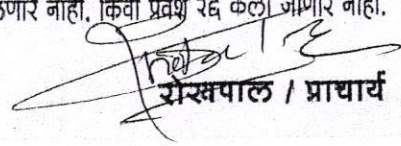 णार नाही. किंवा प्रवेश रद्द केला जाणार नाही.
रोखपाल / प्राचार्य